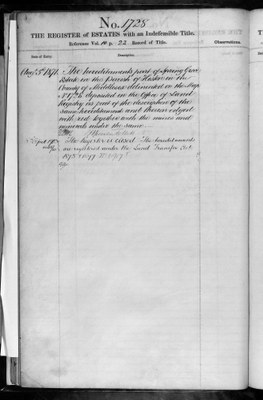 No. 1728
THE REGISTER of ESTATES with an Indefeasible Title.
Reference Vol. p. 22 Record of Title.
Date of Entry. Description. Observations.
1871. The hereditaments part of Spring Grove
in the Parish of Heston in the
County of Middlesex delineated on the Map
deposited in the Office of Land
Registry as part of the description of the
same hereditaments and thereon edged
with red together with the mines and
minerals under the same
The Register is closed. The hereditaments
are registered under the Land Transfer Act